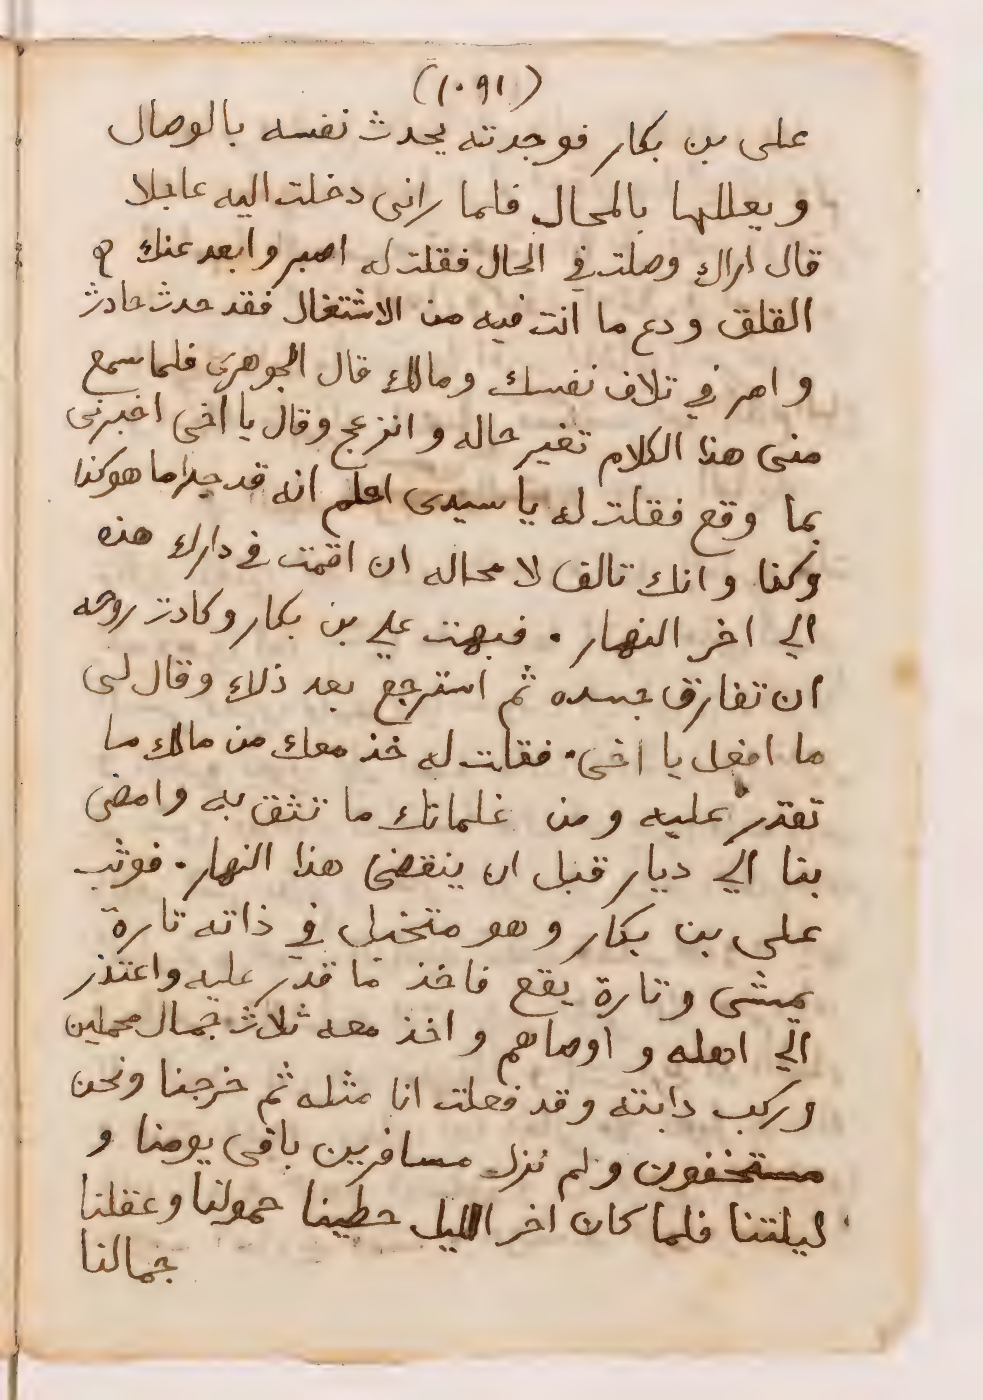 (١٠٩١)
على بن بكار فوجدته يحدث نفسه بالوصال
و يعللها بالمحال فلما رانى دخلت اليه عاجلا
قال اراك وصلت في الحال فقلت له اصبر وابعد عنك
القلق ودع ما انت فيه من الاشتغال فقد حدث حادث
وامر في تلاف نفسك ومالك قال الجوهرى فلما سمع
منى هذا الكلام تغير حاله و انزعج وقال يا اخى اخبرنى
بما وقع فقلت له يا سيدى اعلم انه قد جرا ما هو كذا
وكذا وانك تالف لا محاله ان اقمت في دارك هذه
الي اخر النهار . فبهت علي بن بكار وكادت روحه
ان تفارق جسده ثم استرجع بعد ذلك وقال لى
ما افعل يا اخى . فقلت له خذ معك من مالك ما
تقدر عليه ومن غلمانك ما تثق به وامضى
بنا الي ديار قبل ان ينقضى هذا النهار . فوثب
على بن بكار وهو متخبل في ذاته تارة
يمشى وتارة يقع فاخذ ما قدر عليه واعتذر
الي اهله و اوصاهم و اخذ معه ثلاث جمال محملين
وركب دابته وقد فعلت انا مثله ثم خرجنا ونحن
مستخفون ولم نزل مسافرين باقى يومنا و
ليلتنا فلما كان اخر الليل حطينا حمولنا وعقلنا
جمالنا